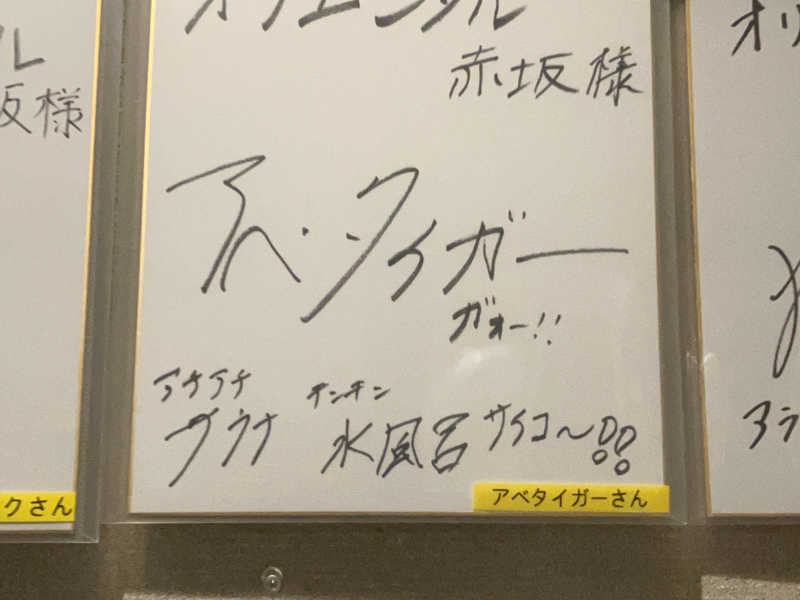 オリエンタル
赤坂様
アベ・タイガー
ガオー!!
アチアチ
サウナ
キンキン
水風呂サイコ〜!!
アベタイガーさん
ル
坂様
クさん
オリ
アラ